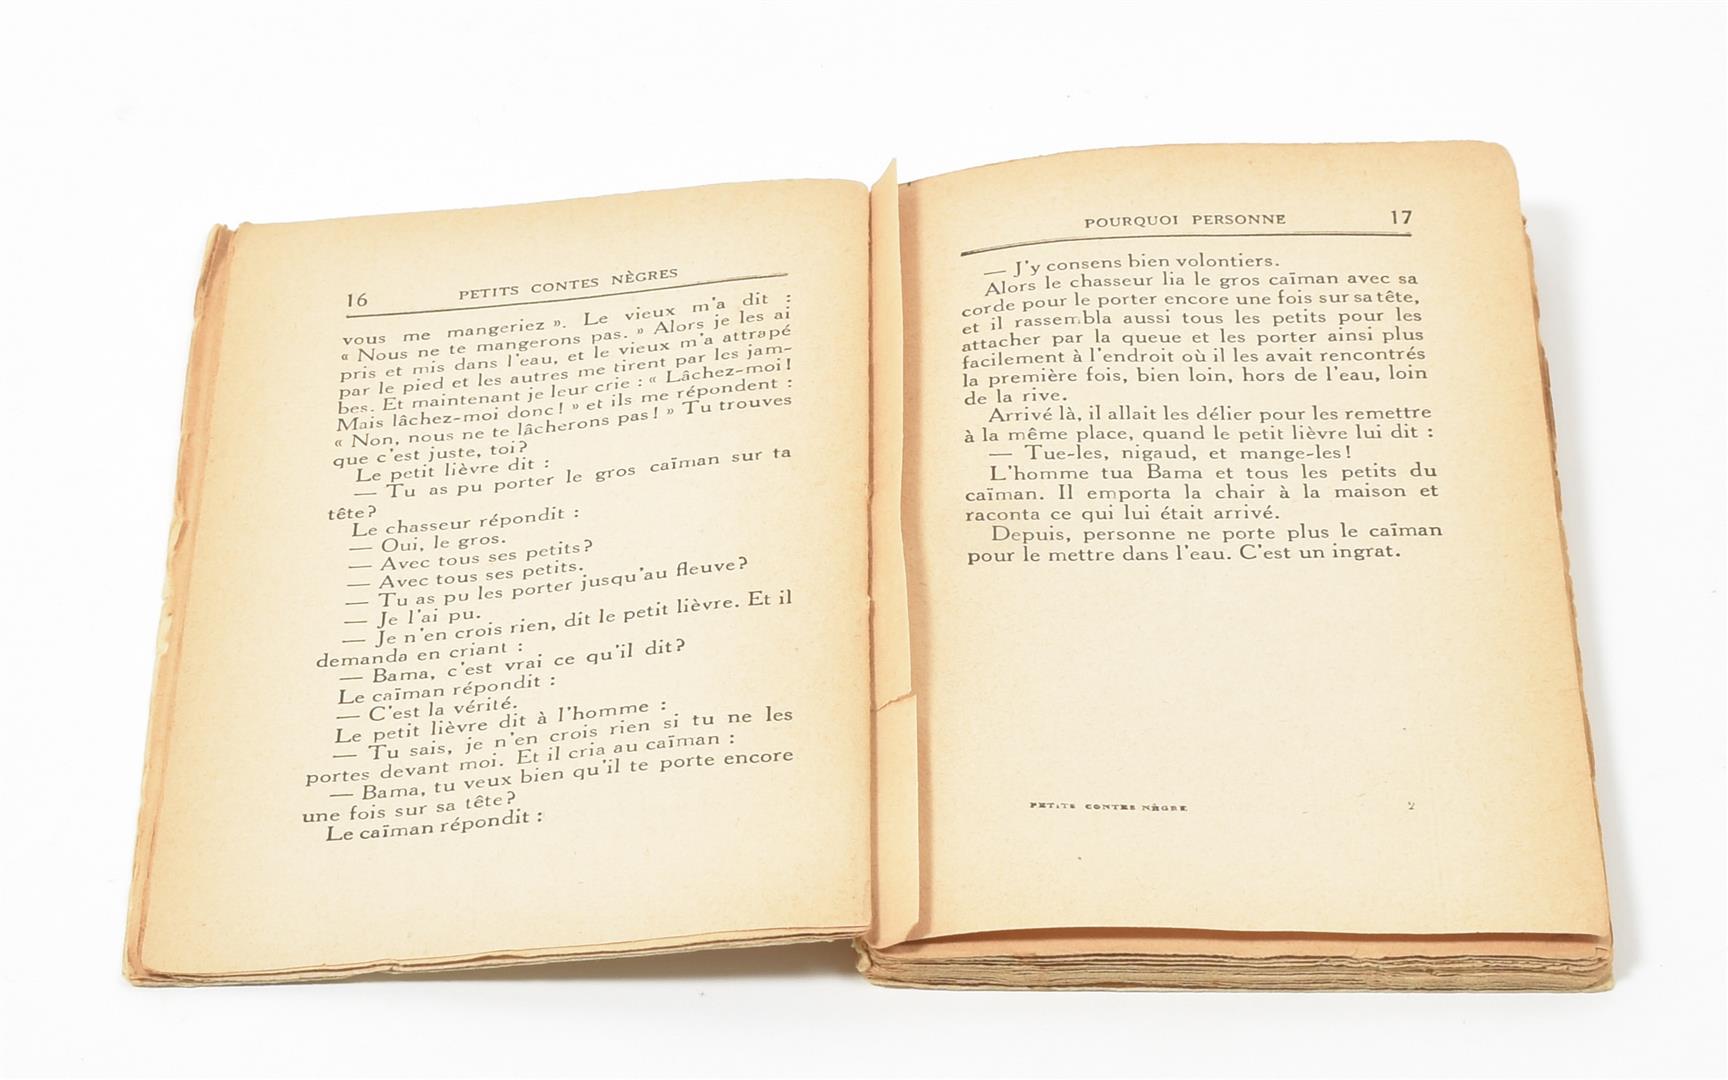 16 PETITS CONTES NÈGRES
vous me mangeriez ». Le vieux m'a dit :
« Nous ne te mangerons pas. » Alors je les ai
pris et mis dans l'eau, et le vieux m'a attrapé
par le pied et les autres me tirent par les jam-
bes. Et maintenant je leur crie : « Lâchez-moi !
Mais lâchez-moi donc ! » et ils me répondent :
« Non, nous ne te lâcherons pas ! » Tu trouves
que c'est juste, toi ?
Le petit lièvre dit :
— Tu as pu porter le gros caïman sur ta
tête ?
Le chasseur répondit :
— Oui, le gros.
— Avec tous ses petits ?
— Avec tous ses petits.
— Tu as pu les porter jusqu'au fleuve ?
— Je l'ai pu.
— Je n'en crois rien, dit le petit lièvre. Et il
demanda en criant :
— Bama, c'est vrai ce qu'il dit ?
Le caïman répondit :
— C'est la vérité.
Le petit lièvre dit à l'homme :
— Tu sais, je n'en crois rien si tu ne les
portes devant moi. Et il cria au caïman :
— Bama, tu veux bien qu'il te porte encore
une fois sur sa tête ?
Le caïman répondit :
POURQUOI PERSONNE 17
— J'y consens bien volontiers.
Alors le chasseur lia le gros caïman avec sa
corde pour le porter encore une fois sur sa tête,
et il rassembla aussi tous les petits pour les
attacher par la queue et les porter ainsi plus
facilement à l'endroit où il les avait rencontrés
la première fois, bien loin, hors de l'eau, loin
de la rive.
Arrivé là, il allait les délier pour les remettre
à la même place, quand le petit lièvre lui dit :
— Tue-les, nigaud, et mange-les !
L'homme tua Bama et tous les petits du
caïman. Il emporta la chair à la maison et
raconta ce qui lui était arrivé.
Depuis, personne ne porte plus le caïman
pour le mettre dans l'eau. C'est un ingrat.
PETITS CONTES NÈGRE 2